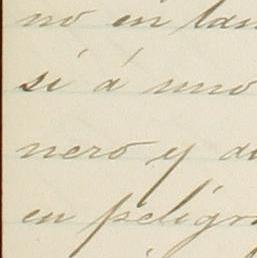 no en tan
si á uno
nero y di
en peligr